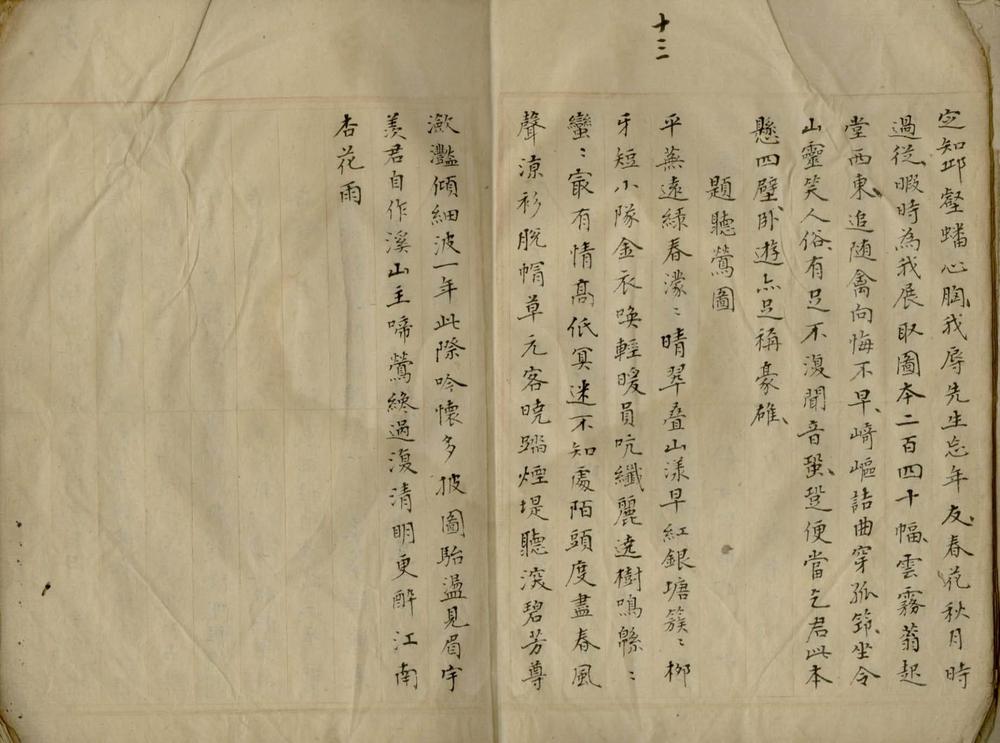 十三
定知邱壑蟠心胸我辱先生忘年友春花秋月時
過從暇時為我展取圖本二百四十幅雲霧蓊起
堂西東追随禽向悔不早﨑嶇詰曲穿孤筇坐令
山靈笑人俗有足不復聞音蛩跫便當乞君此本
懸四壁卧遊亦足稱豪雄
題聽鶯圖
平蕪遠綠春濛〻晴翠叠山漾早紅銀塘簇〻柳
牙短小隊金衣喚輕暖員吭纖麗遶樹鳴緜〻
蠻〻㝡有情髙低冥迷不知處陌頭度盡春風
聲凉衫脫帽草元客曉踏煙堤聽滾碧芳尊
潋灩傾細波一年此際吟懷多披圖駘盪見眉宇
羨君自作溪山主啼鶯纔過復清明更酔江南
杏花雨